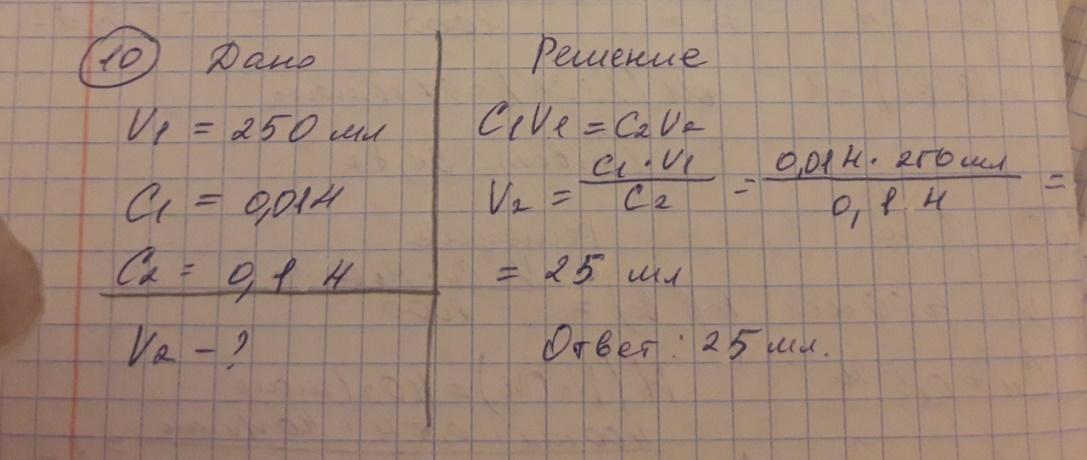 10 Дано
V1 = 250 мл
C1 = 0,01 Н
C2 = 0,1 Н
V2 - ?
Решение
C1V1 = C2V2
V2 = C1 · V1 / C2 = 0,01 Н · 250 мл / 0,1 Н =
= 25 мл
Ответ: 25 мл.